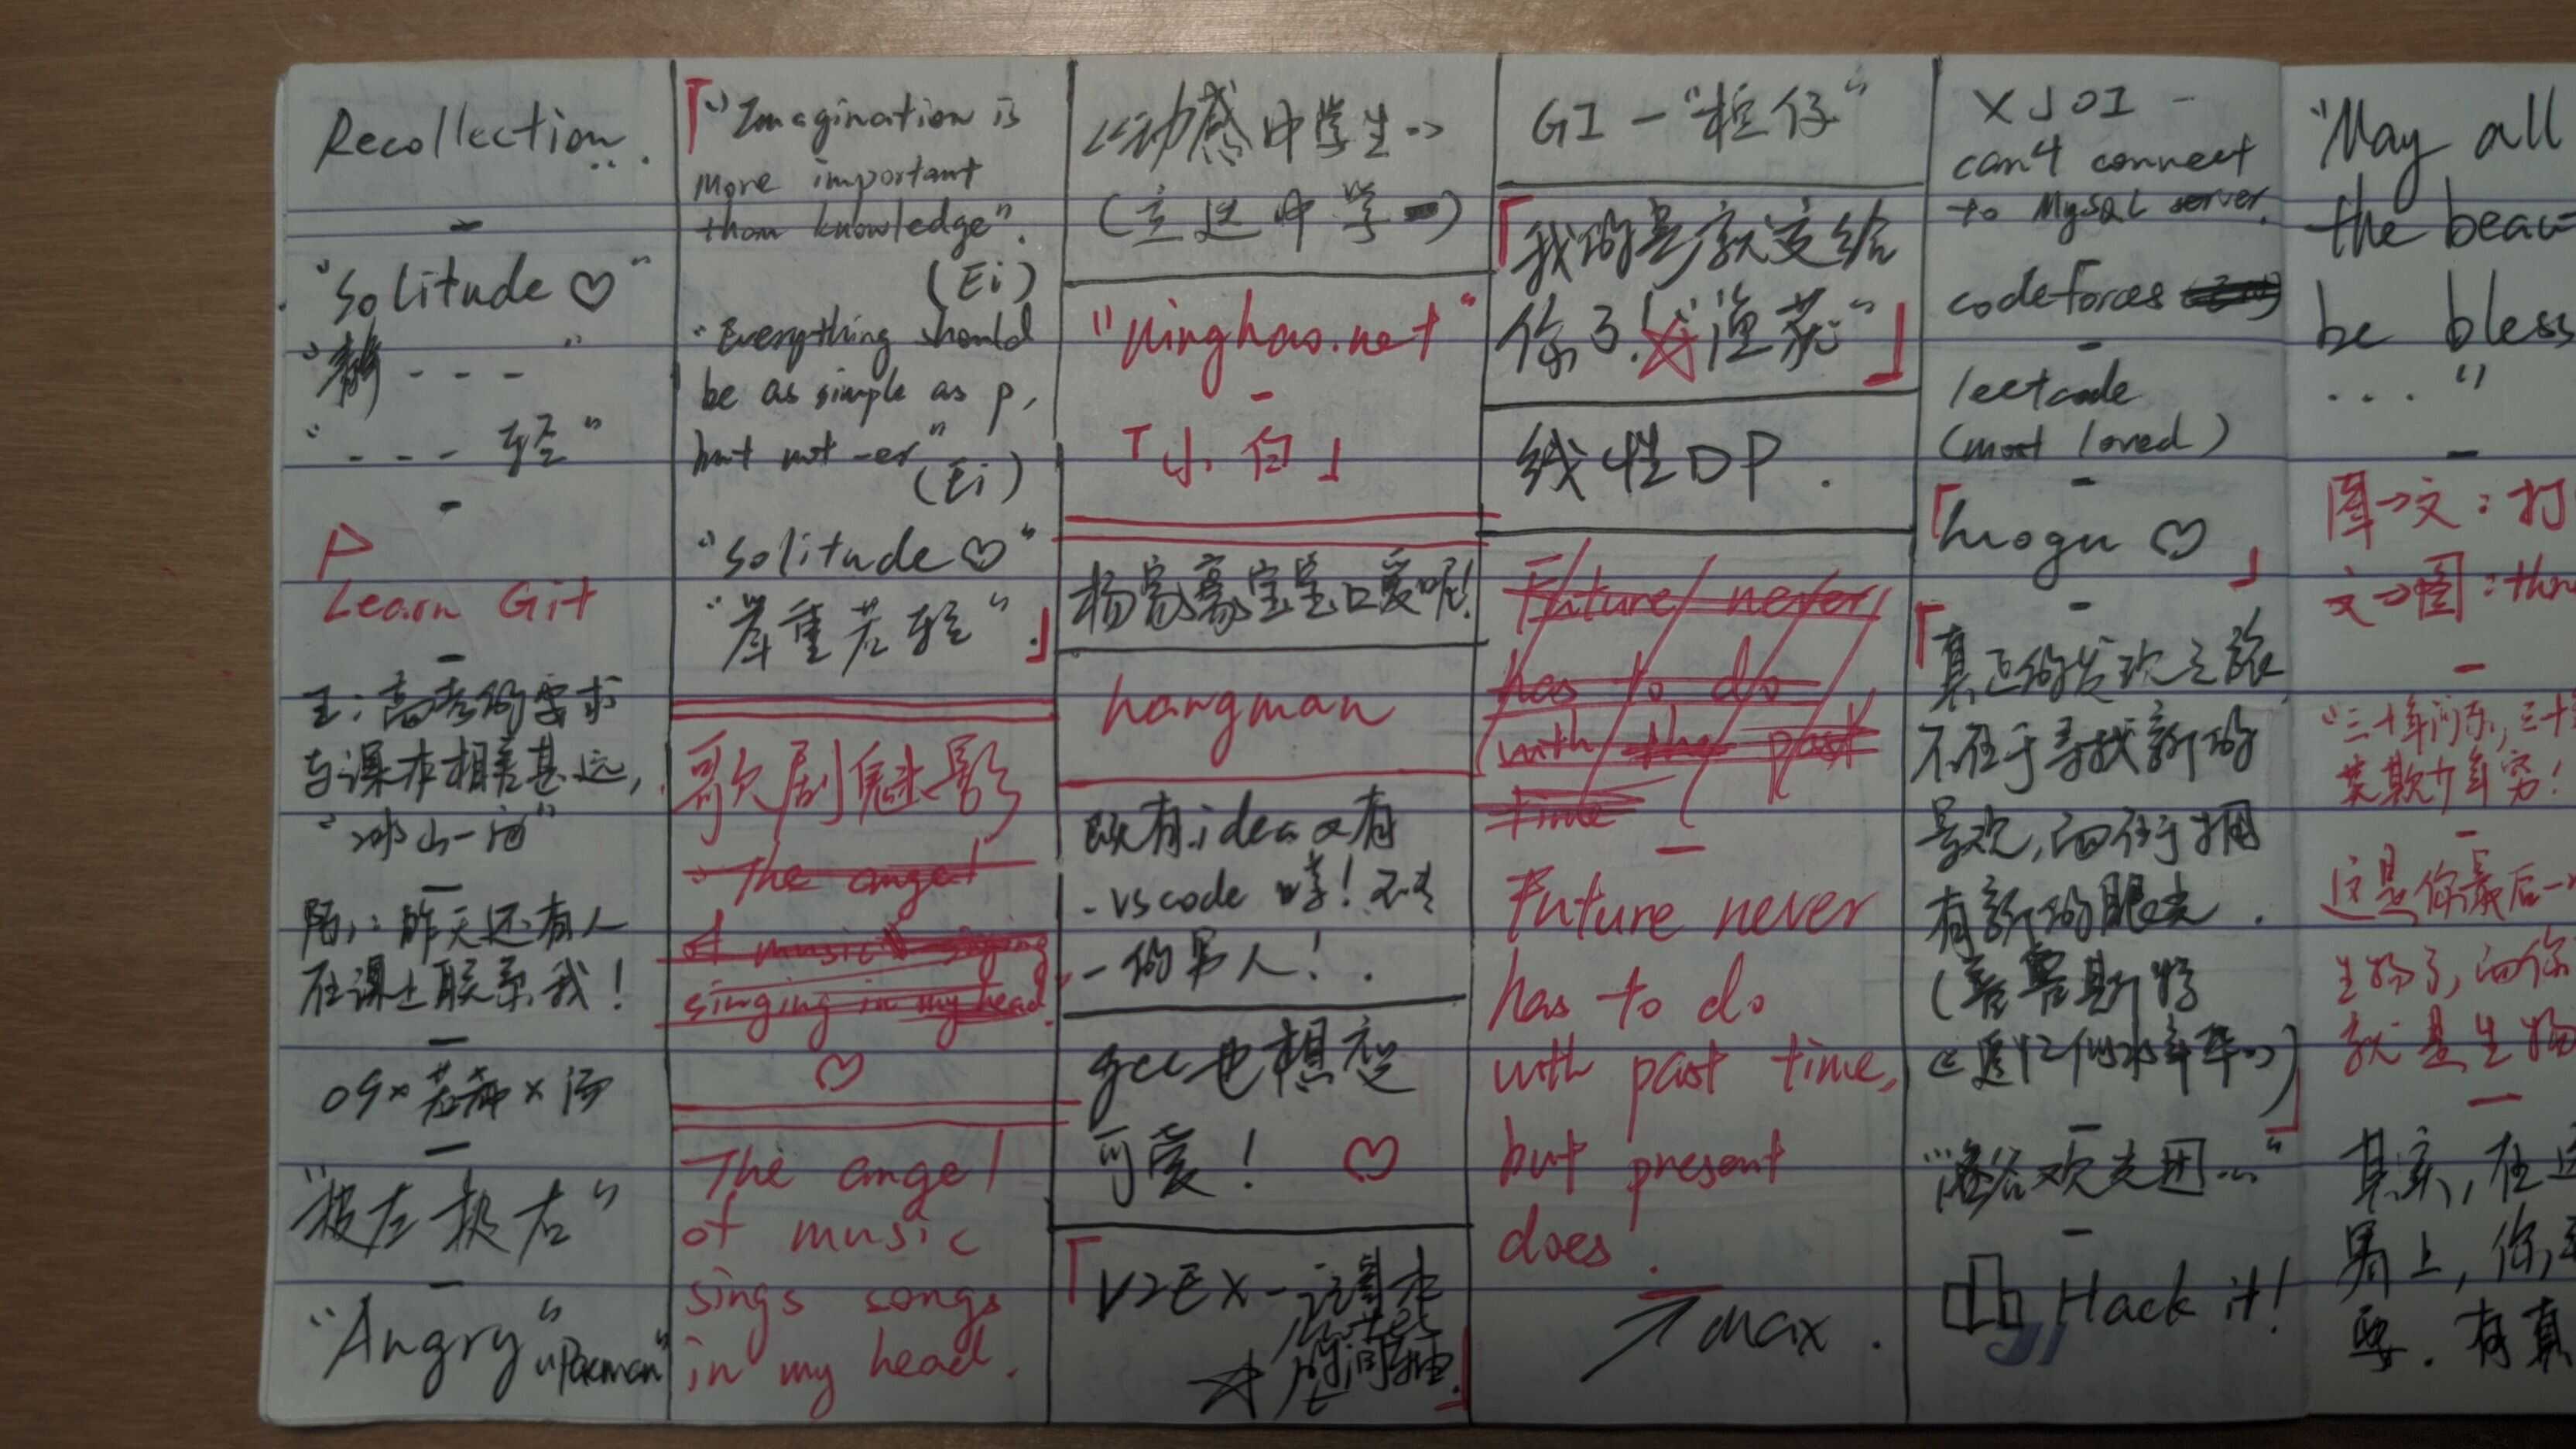 Recollection...
-
"Solitude ♡"
- - -
"- - - 轻"
-
P
Learn Git
-
王：高考的要求
与课本相差甚远,
"冰山一角"
-
陈：昨天还有人
在课上联系我！
-
-
"极左极右"
-
"Angry"
"Pacman"
"Imagination is
more important
than knowledge".
(Ei)
"Everything should
be as simple as p,
but not -er"
(Ei)
"Solitude ♡"
"举重若轻".
歌剧魅影
The angel
of music
singing in my head
♡
The angel
of music
sings songs
in my head.
《动感中学生》
"ninghao.net"
-
「小白」
hangman
既有idea又有
vscode
一的男人！.
gcc也想想
可爱！ ♡
V2EX-
GI-
「我的号就交给
你了！
线性DP.
Future never
has to do
with the past
time
-
Future never
has to do
with past time,
but present
does.
max.
XJOI -
can't connect
to MySQL server.
codeforces
-
leetcode
(most loved)
-
「luogu ♡」
-
「真正的发现之旅
不在于寻找新的
景观,而在于拥
有新的眼光.
(普鲁斯特
《追忆似水年华》)」
-
-
Hack it!
"May all
the beau
be bless
...."
-
图→文：打
文→图：
-
"三十年河东,三十
莫欺少年穷！
-
这是你最后一
生物了,而你
就是生物
-
其实,在这
男上,你
要.有真